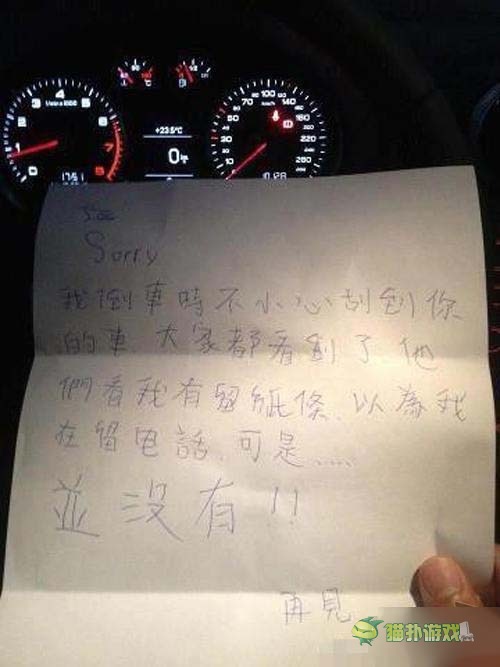 +23.5°C
0
Sorry
我倒車時不小心刮到你
的車.大家都看到了.他
們看我有留紙條.以為我
在留电話.可是.....
並沒有!!
再見
貓扑游戏